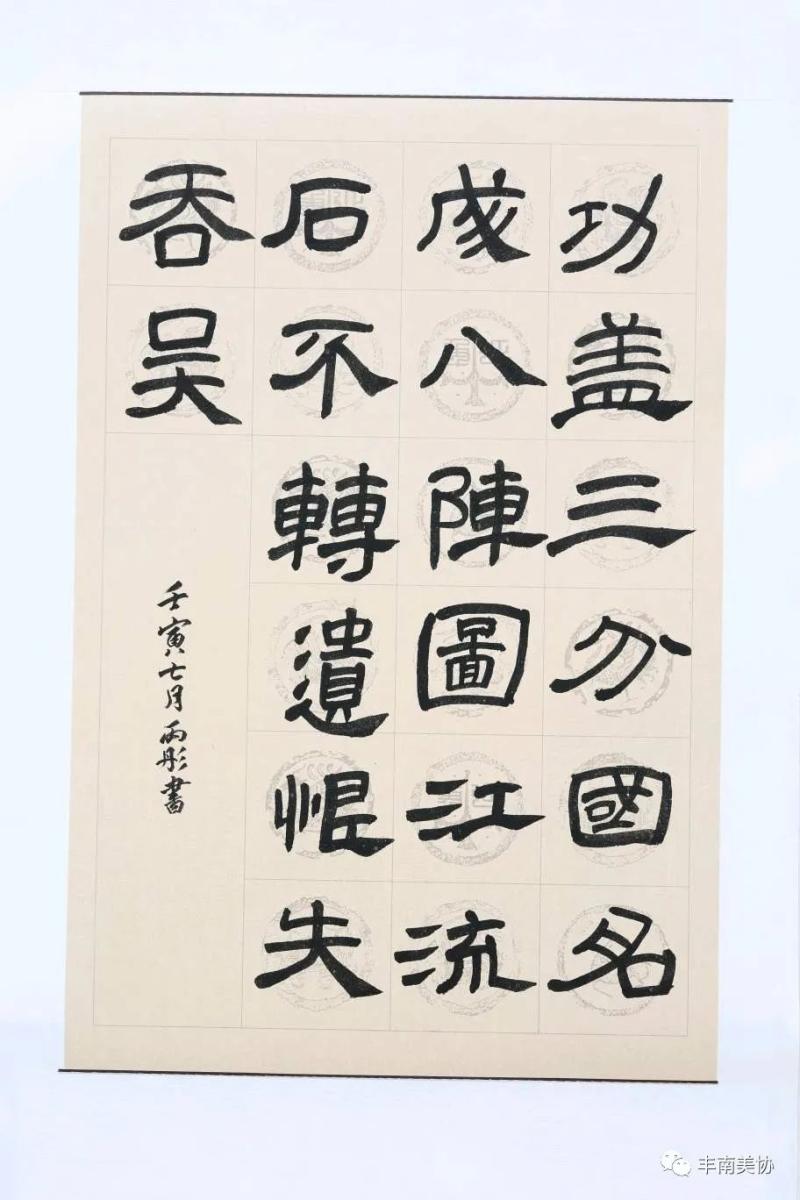 功盖三分國名
成八陣圖江流
石不轉遺恨失
吞吴
壬寅七月丙彤書
丰南美协